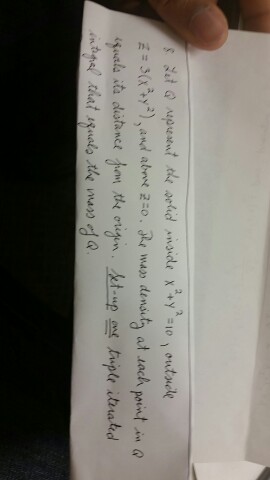 8. Let Q represent the solid inside x²+y²=10, outside
z = 3(x²+y²), and above z=0. The mass density at each point in Q
equals its distance from the origin. Set-up one triple iterated
integral that equals the mass of Q.